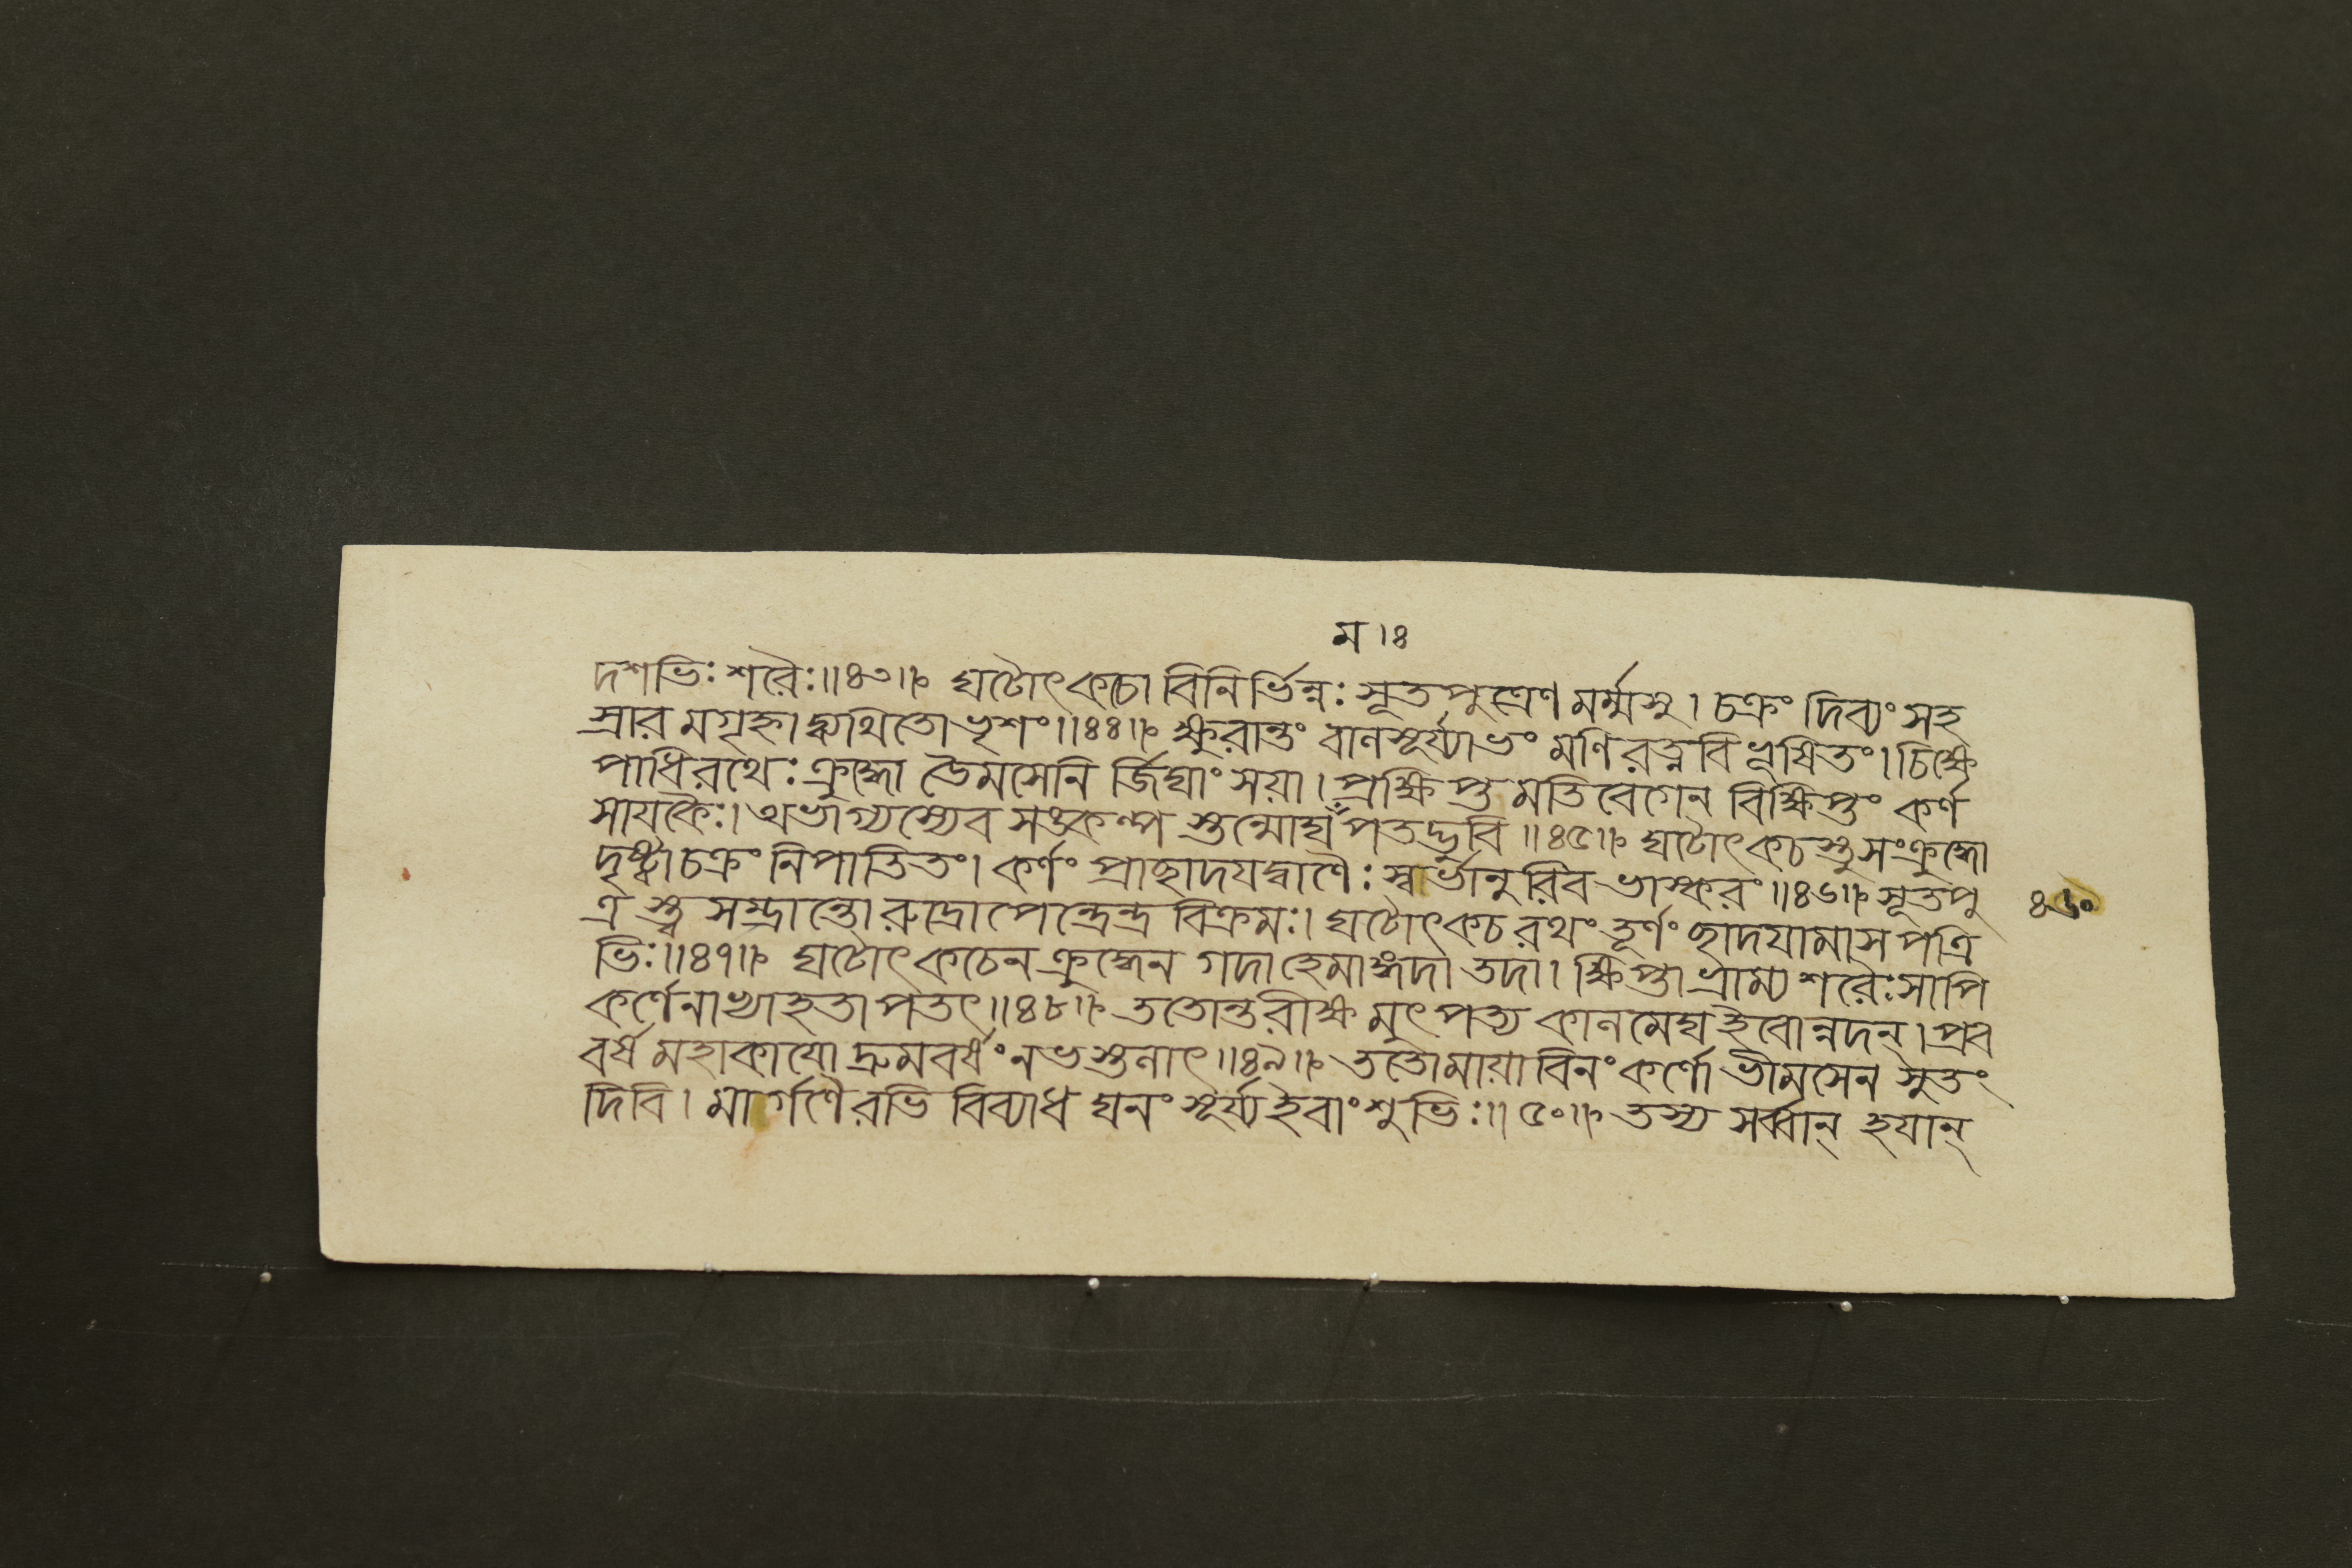 ম।ঃ
দশভিঃ শরৈঃ॥৪৩॥ ঘটোৎকচো বিনির্ভিন্নঃ সূতপুত্রেণ মর্ম্মসু। চক্রং দিব্যং সহ
স্রার মগৃহ্নাদ্ব্যথিতো ভৃশং॥৪৪॥ ক্ষুরান্তং বালসূর্য্যাভং মণিরত্নবিভূষিতং। চিক্ষে
পাধিরথেঃ ক্রুদ্ধো ভৈমসেনি র্জিঘাংসয়া। প্রক্ষিপ্ত মতিবেগেন বিক্ষিপ্তং কর্ণ
সায়কৈঃ। অভাগ্যস্যেব সঙ্কল্প স্তন্মোঘঁপতদ্ভুবি॥৪৫॥ ঘটোৎকচস্তু সংক্রুদ্ধো
দৃষ্ট্বা চক্রং নিপাতিতং। কর্ণং প্রাচ্ছাদযদ্বাণৈঃ স্বর্ভানুরিব ভাস্করং॥৪৬॥ সূতপু
ত্র স্ত্ব সম্ভ্রান্তো রুদ্রোপেন্দ্রেন্দ্র বিক্রমঃ। ঘটোৎকচরথং তূর্ণং ছাদযামাস পত্রি
৪৬০
ভিঃ॥৪৭॥ ঘটোৎকচেন ক্রুদ্ধেন গদা হেমাঙ্গদা তদা। ক্ষিপ্তা ভ্রাম্য শরৈঃ সাপি
কর্ণেনাভ্যাহতাপতৎ॥৪৮॥ ততোন্তরীক্ষ মুৎপত্য কালমেঘ ইবোন্নদন্। প্রব
বর্ষ মহাকাযো দ্রুমবর্ষং নভস্তলাৎ॥৪৯॥ ততোমায়াবিনং কর্ণো ভীমসেন সুতং
দিবি। মার্গণৈরভি বিব্যাধ ঘনং সূর্য্য ইবাংশুভিঃ॥৫০॥ তস্য সর্ব্বান্ হযান্